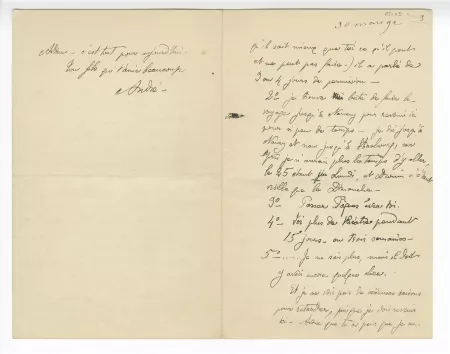 Adieu - c'est tout pour aujourd'hui.
Ton fils qui t'aime beaucoup
André -
3
qu'il sait mieux que toi ce qu'il peut
et ne peut pas faire.) il a parlé de
3 ou 4 jours de permission -
2° je trouve bête de faire le
voyage jusqu'à Nancy pour revenir
si peu de temps - je dis jusqu'à
Nancy et non jusqu'à Strasbourg, car
je n'aurais plus le temps d'y aller,
le 15 étant Lundi, et
que le Dimanche -
3° Passer Papa sera ici.
4° plus de théâtre pendant
15 jours - ou trois semaines -
5° ... Je ne sais plus, mais il doit
y avoir encore quelque chose.
Et je ne vois pas de raisons
pour retarder, puisque je dois revenir
ici - Adieu que tu ne peux que je ne